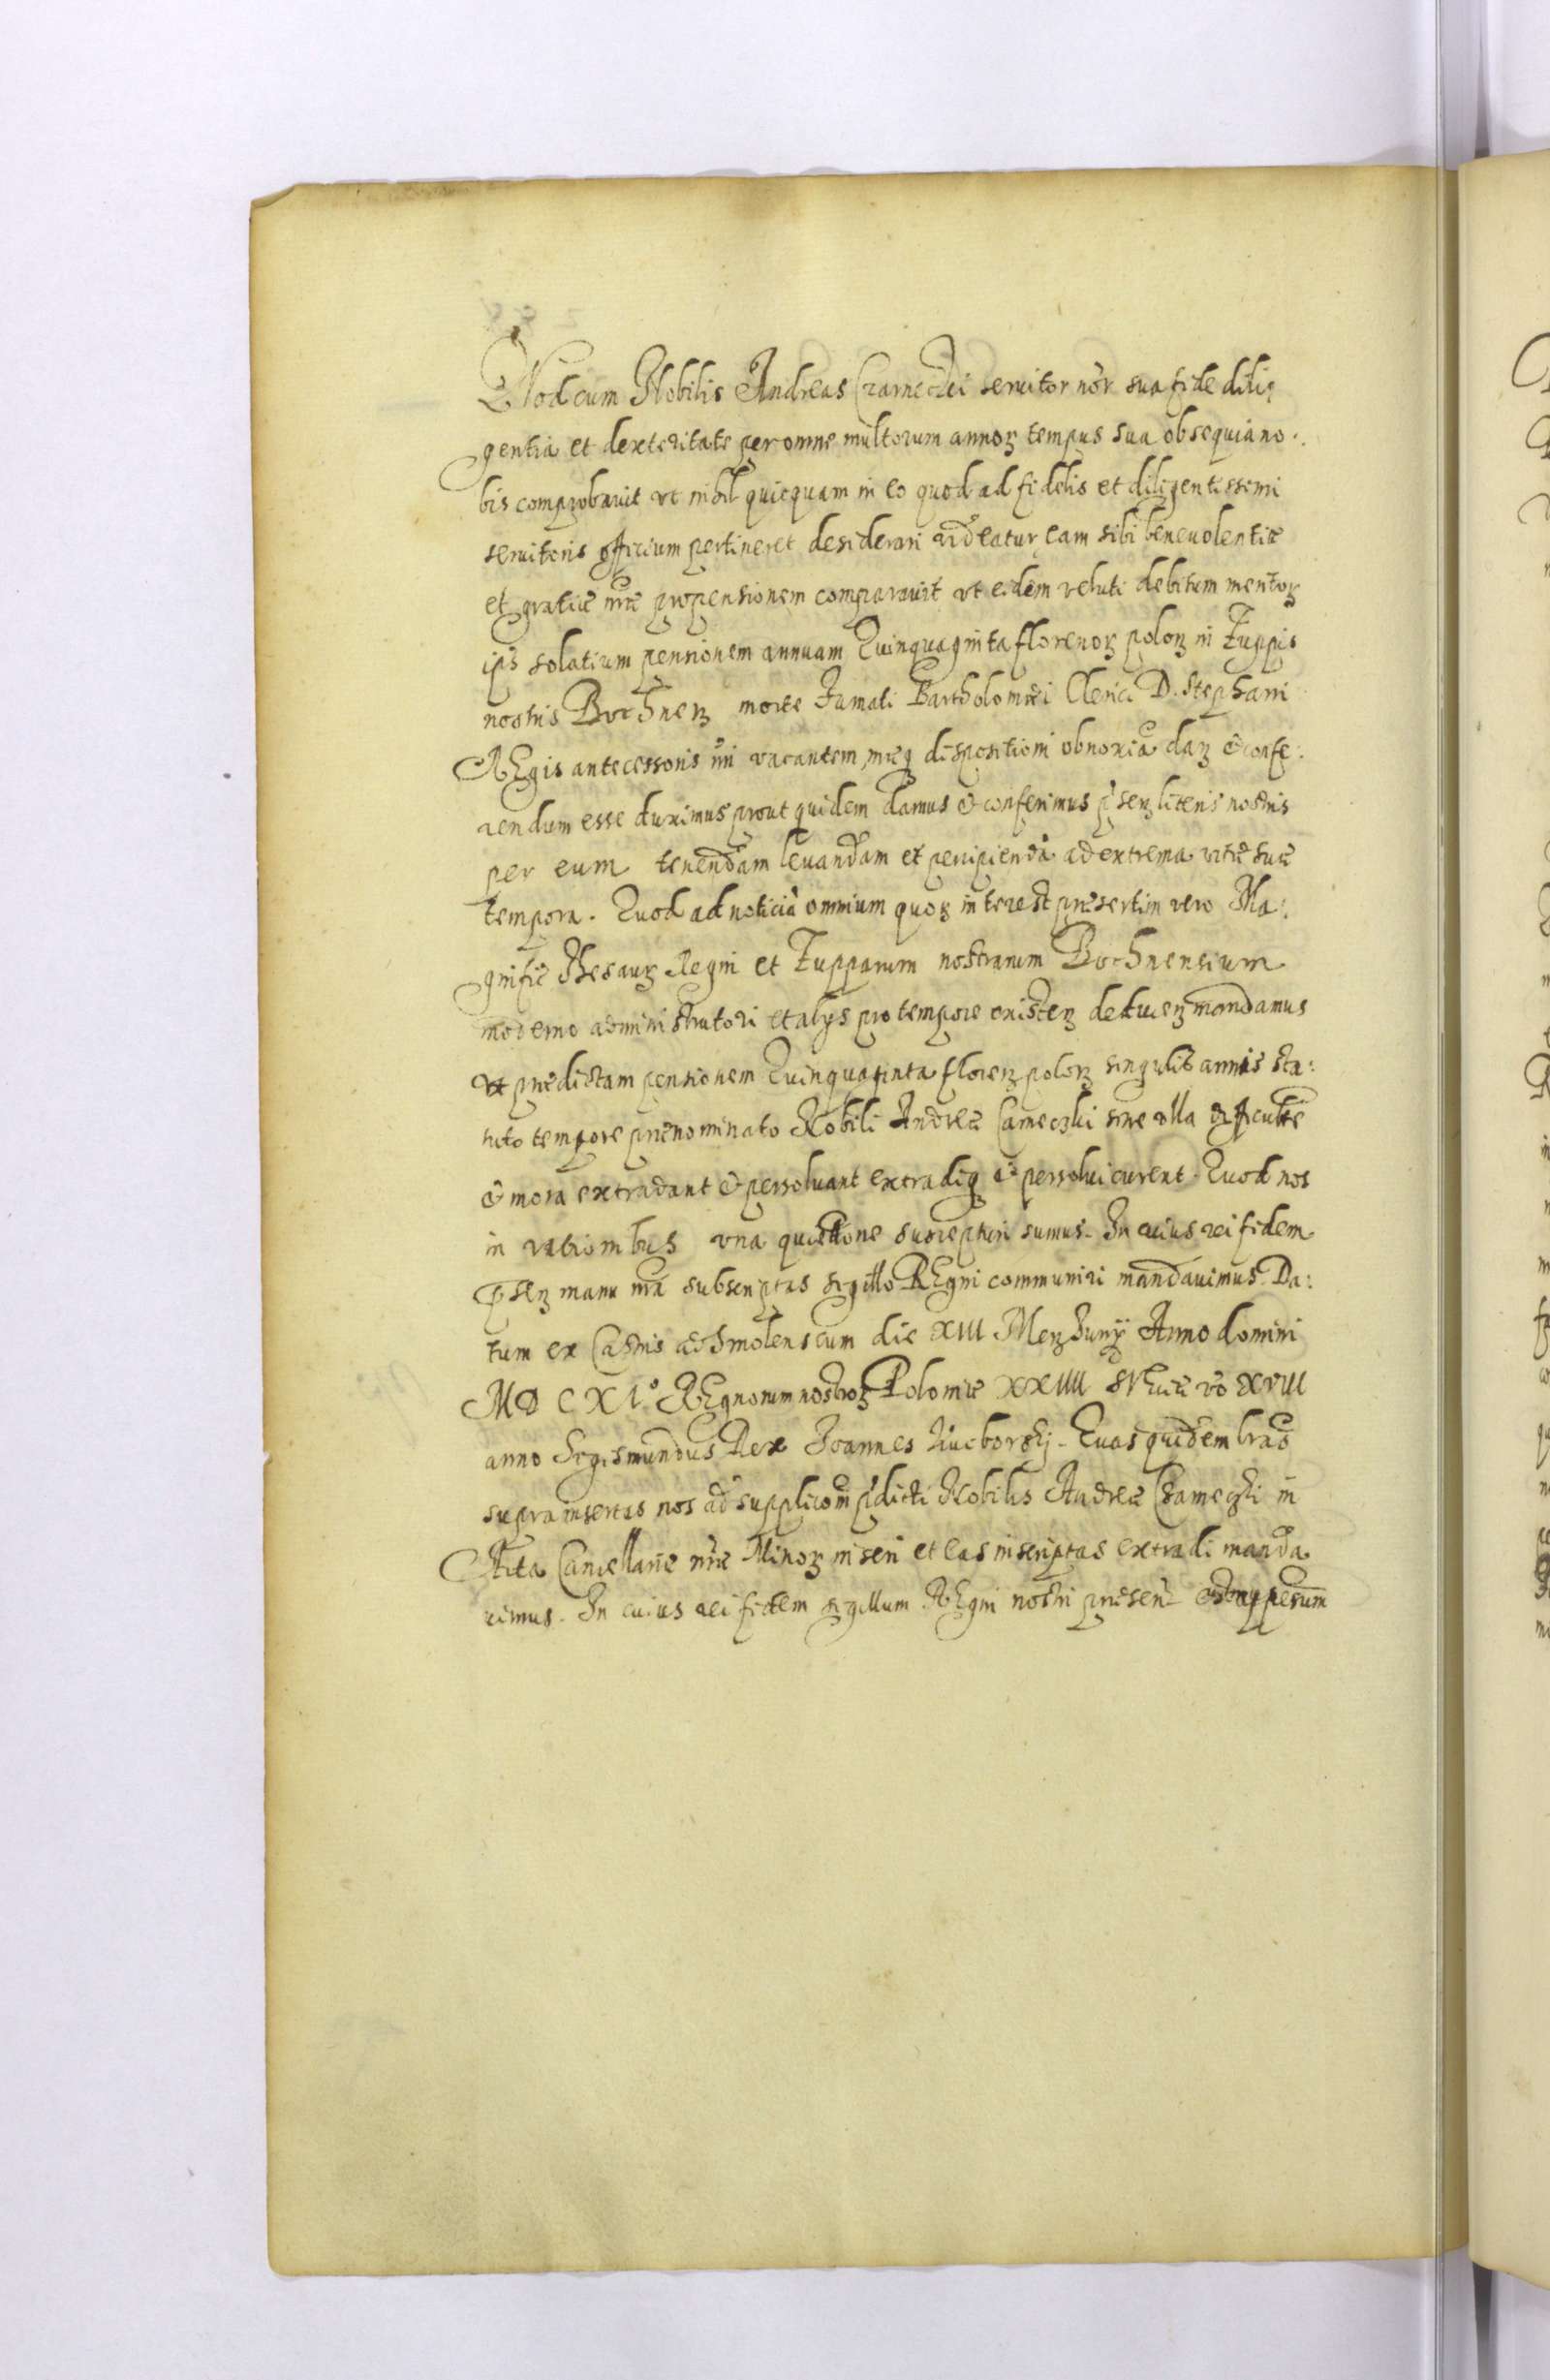 Quod cum Nobilis Andreas Czarneczki seruitor nr̄ sua fide dili:
gentia et dexteritate per omne multorum annoꝝ tempus sua obsequia no:
bis comprobauit vt nihil quicquam in eo quod ad fidelis et diligentissimi
seruitoris officium pertineret desiderari videatur, eam sibi beneuolentiæ
et gratiæ nr̄æ propensionem comparauit vt eidem veluti debitum meritoꝝ
ips̄ solatium pensionem annuam Quinquaginta florenoꝝ poloꝝ in Zuppis
nostris Bochneꝝ morte Famati Bartholomæi Clerici D. Stephani
REgis antecessoris nr̄i vacantem, nr̄æq dispositioni obnoxiā daꝝ & confe:
rendum esse duximus prout quidem damus & conferimus p̄seꝝ literis nostris
per eum tenendam leuandam et percipiendā ad extrema vitæ suæ
tempora. Quod ad noticiā omnium quoꝝ interest præsertim vero Ma:
gnific Thesauꝝ Regni et Zupparum nostrarum Bochnensium
moderno administratori et alijs pro tempore existeꝝ deduceꝝ mandamus
vt prædictam pensionem Quinquaginta floreꝝ poloꝝ singulis annis sta:
tuto tempore prænominato Nobili Andreæ Carneczki sine vlla difficulte
& mora extradant & persoluant extradiq & persolui curent. Quod nos
in rationibus vna quiettone suscepturi sumus. In cuius rei fidem
p̄seꝝ manu nr̄a subscriptas sigillo REgni communiri mandauimus. Da:
tum ex Castris ad Smolenscum die XIII Meꝝ Junij Anno domini
MDCXI° REgnorum nostroꝝ Poloniæ XXIIII SVeciæ vo XVIII
anno Sigismundus Rex Joannes Kuczborskj. Quas quidem lras
supra insertas nos ad supplicom p̄dicti Nobilis Andreæ Czarneczki in
Acta Cancellariæ nr̄æ Minoꝝ inseri et eas inscriptas extradi manda
uimus. In cuius rei fidem sigillum REgni nostri præsent